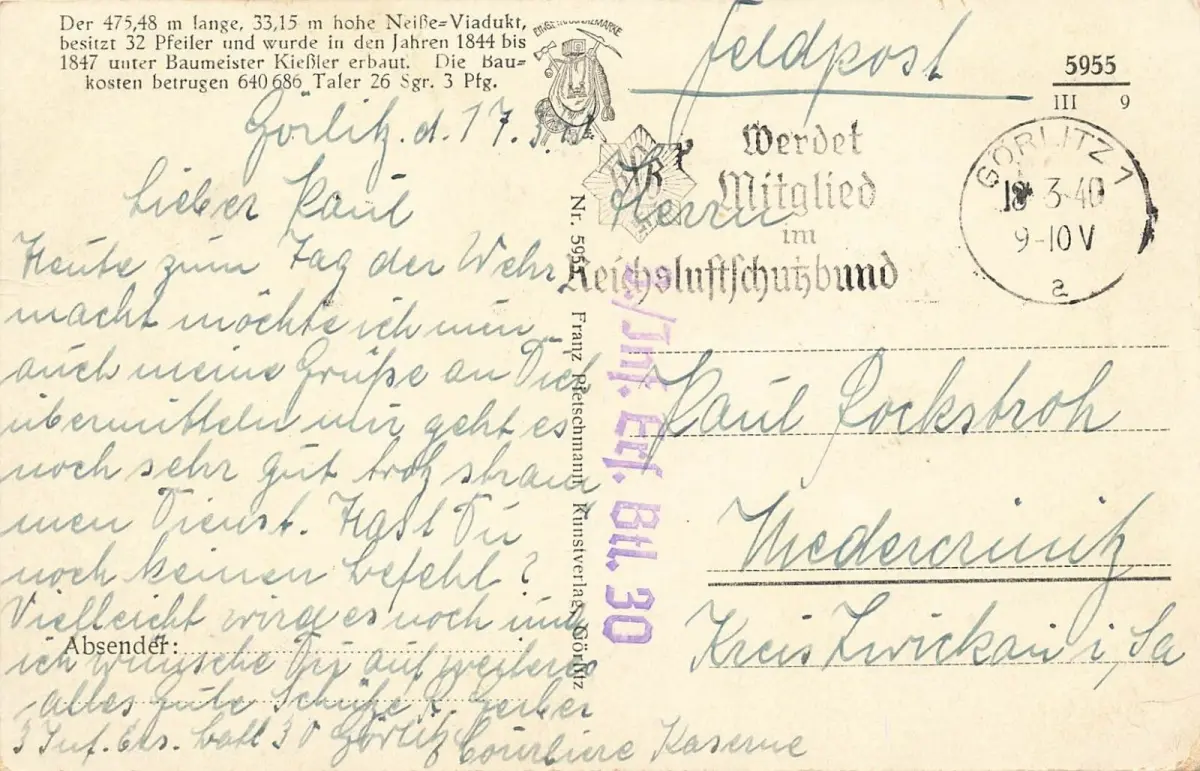 Der 475,48 m lange, 33,15 m hohe Neiße-Viadukt,
besitzt 32 Pfeiler und wurde in den Jahren 1844 bis
1847 unter Baumeister Kießler erbaut. Die Bau-
kosten betrugen 640 686 Taler 26 Sgr. 3 Pfg.
Görlitz. d. 17.3.
Lieber Paul
Heute zum Tag der Wehr
macht möchte ich nun
auch meine Grüße an Dich
übermitteln mir geht es
noch sehr gut trotz stram
men Dienst. Hast Du
noch keinen Befehl?
Vielleicht wird es noch und
Absender:
ich wünsche Dir auf weiteres
alles Gute Schütze Gerber
3 Inf. Ers. Batl 30 Görlitz Courbiere Kaserne
Nr. 5955 Franz Pietschmann Kunstverlag, Görlitz
Feldpost
5955
III 9
Werdet
Mitglied
im
Reichsluftschutzbund
GÖRLITZ 1
18 3-40
9-10 V
a
3/Inf. Ers. Btl. 30
Herrn
Paul Rockstroh
Niedercrinitz
Kreis Zwickau i, Sa